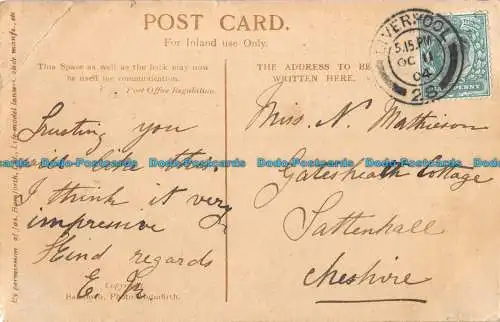 POST CARD.
For Inland use Only.
This Space as well as the back may now
be used for communication.
Post Office Regulation.
THE ADDRESS TO BE
WRITTEN HERE.
LIVERPOOL
5.15 PM
OC 11
04
Trusting you
will like this.
I think it very
impressive
Kind regards
E.
Miss. N. Mathieson
Gatesheath Cottage
Tattenhall
Cheshire
Bamforth, Photo, Holmfirth.
By permission of Jas. Bamforth,
Life-model lantern slide manufr.
Dodo-Postcards Dodo-Postcards Dodo-Postcards Dodo-Postcards